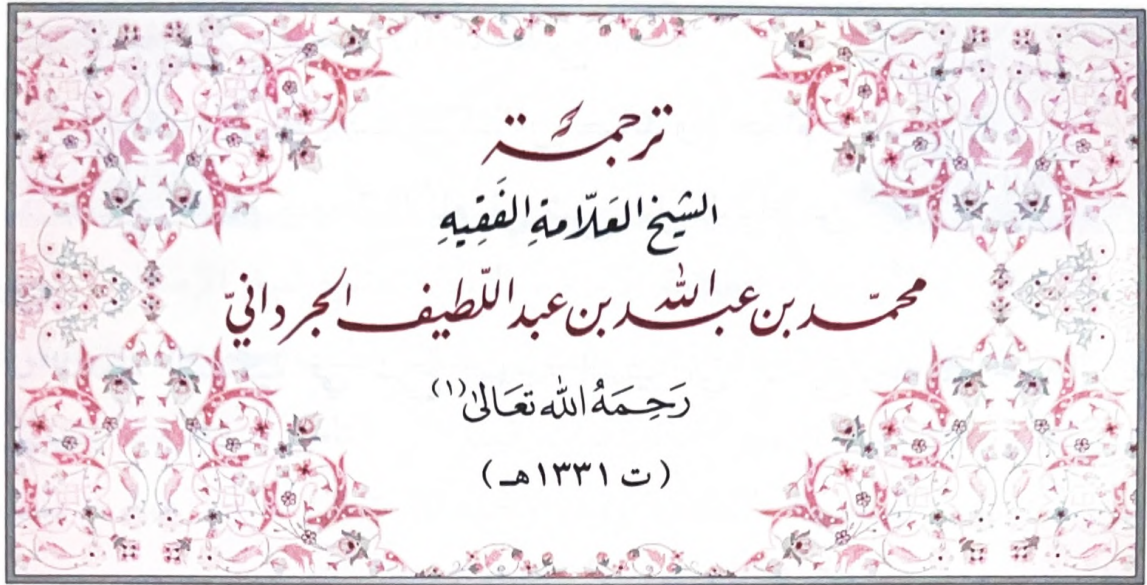 ترجمة
الشيخ العَلّامةِ الفَقِيهِ
محمّد بن عبد الله بن عبد اللّطيف الجردانيّ
رَحِمَهُ الله تعَالىٰ (١)
(ت ١٣٣١هـ)